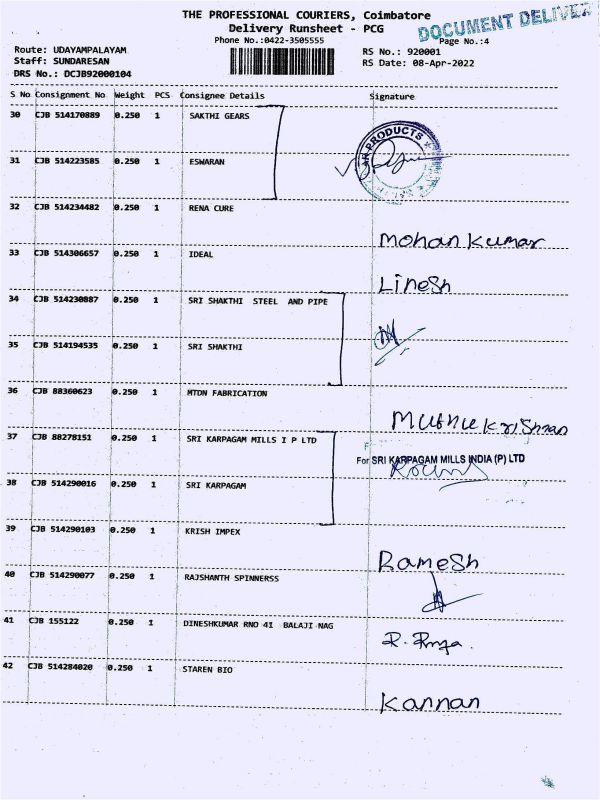 THE PROFESSIONAL COURIERS, Coimbatore
DOCUMENT DELIVER
Delivery Runsheet - PCG
Phone No.:0422-3505555
Page No.:4
Route: UDAYAMPALAYAM
RS No.: 920001
Staff: SUNDARESAN
RS Date: 08-Apr-2022
DRS No.: DCJB92000104
S No Consignment No Weight PCS Consignee Details Signature
30 CJB 514170889 0.250 1 SAKTHI GEARS
PRODUCTS
31 CJB 514223585 0.250 1 ESWARAN
32 CJB 514234482 0.250 1 RENA CURE
Mohan Kumar
33 CJB 514306657 0.250 1 IDEAL
Linesh
34 CJB 514230887 0.250 1 SRI SHAKTHI STEEL AND PIPE
35 CJB 514194535 0.250 1 SRI SHAKTHI
36 CJB 88360623 0.250 1 MTDN FABRICATION
Muthukrishnan
37 CJB 88278151 0.250 1 SRI KARPAGAM MILLS I P LTD
For SRI KARPAGAM MILLS INDIA (P) LTD
38 CJB 514290016 0.250 1 SRI KARPAGAM
39 CJB 514290103 0.250 1 KRISH IMPEX
Ramesh
40 CJB 514290077 0.250 1 RAJSHANTH SPINNERSS
41 CJB 155122 0.250 1 DINESHKUMAR RNO 41 BALAJI NAG
42 CJB 514284020 0.250 1 STAREN BIO
Kannan